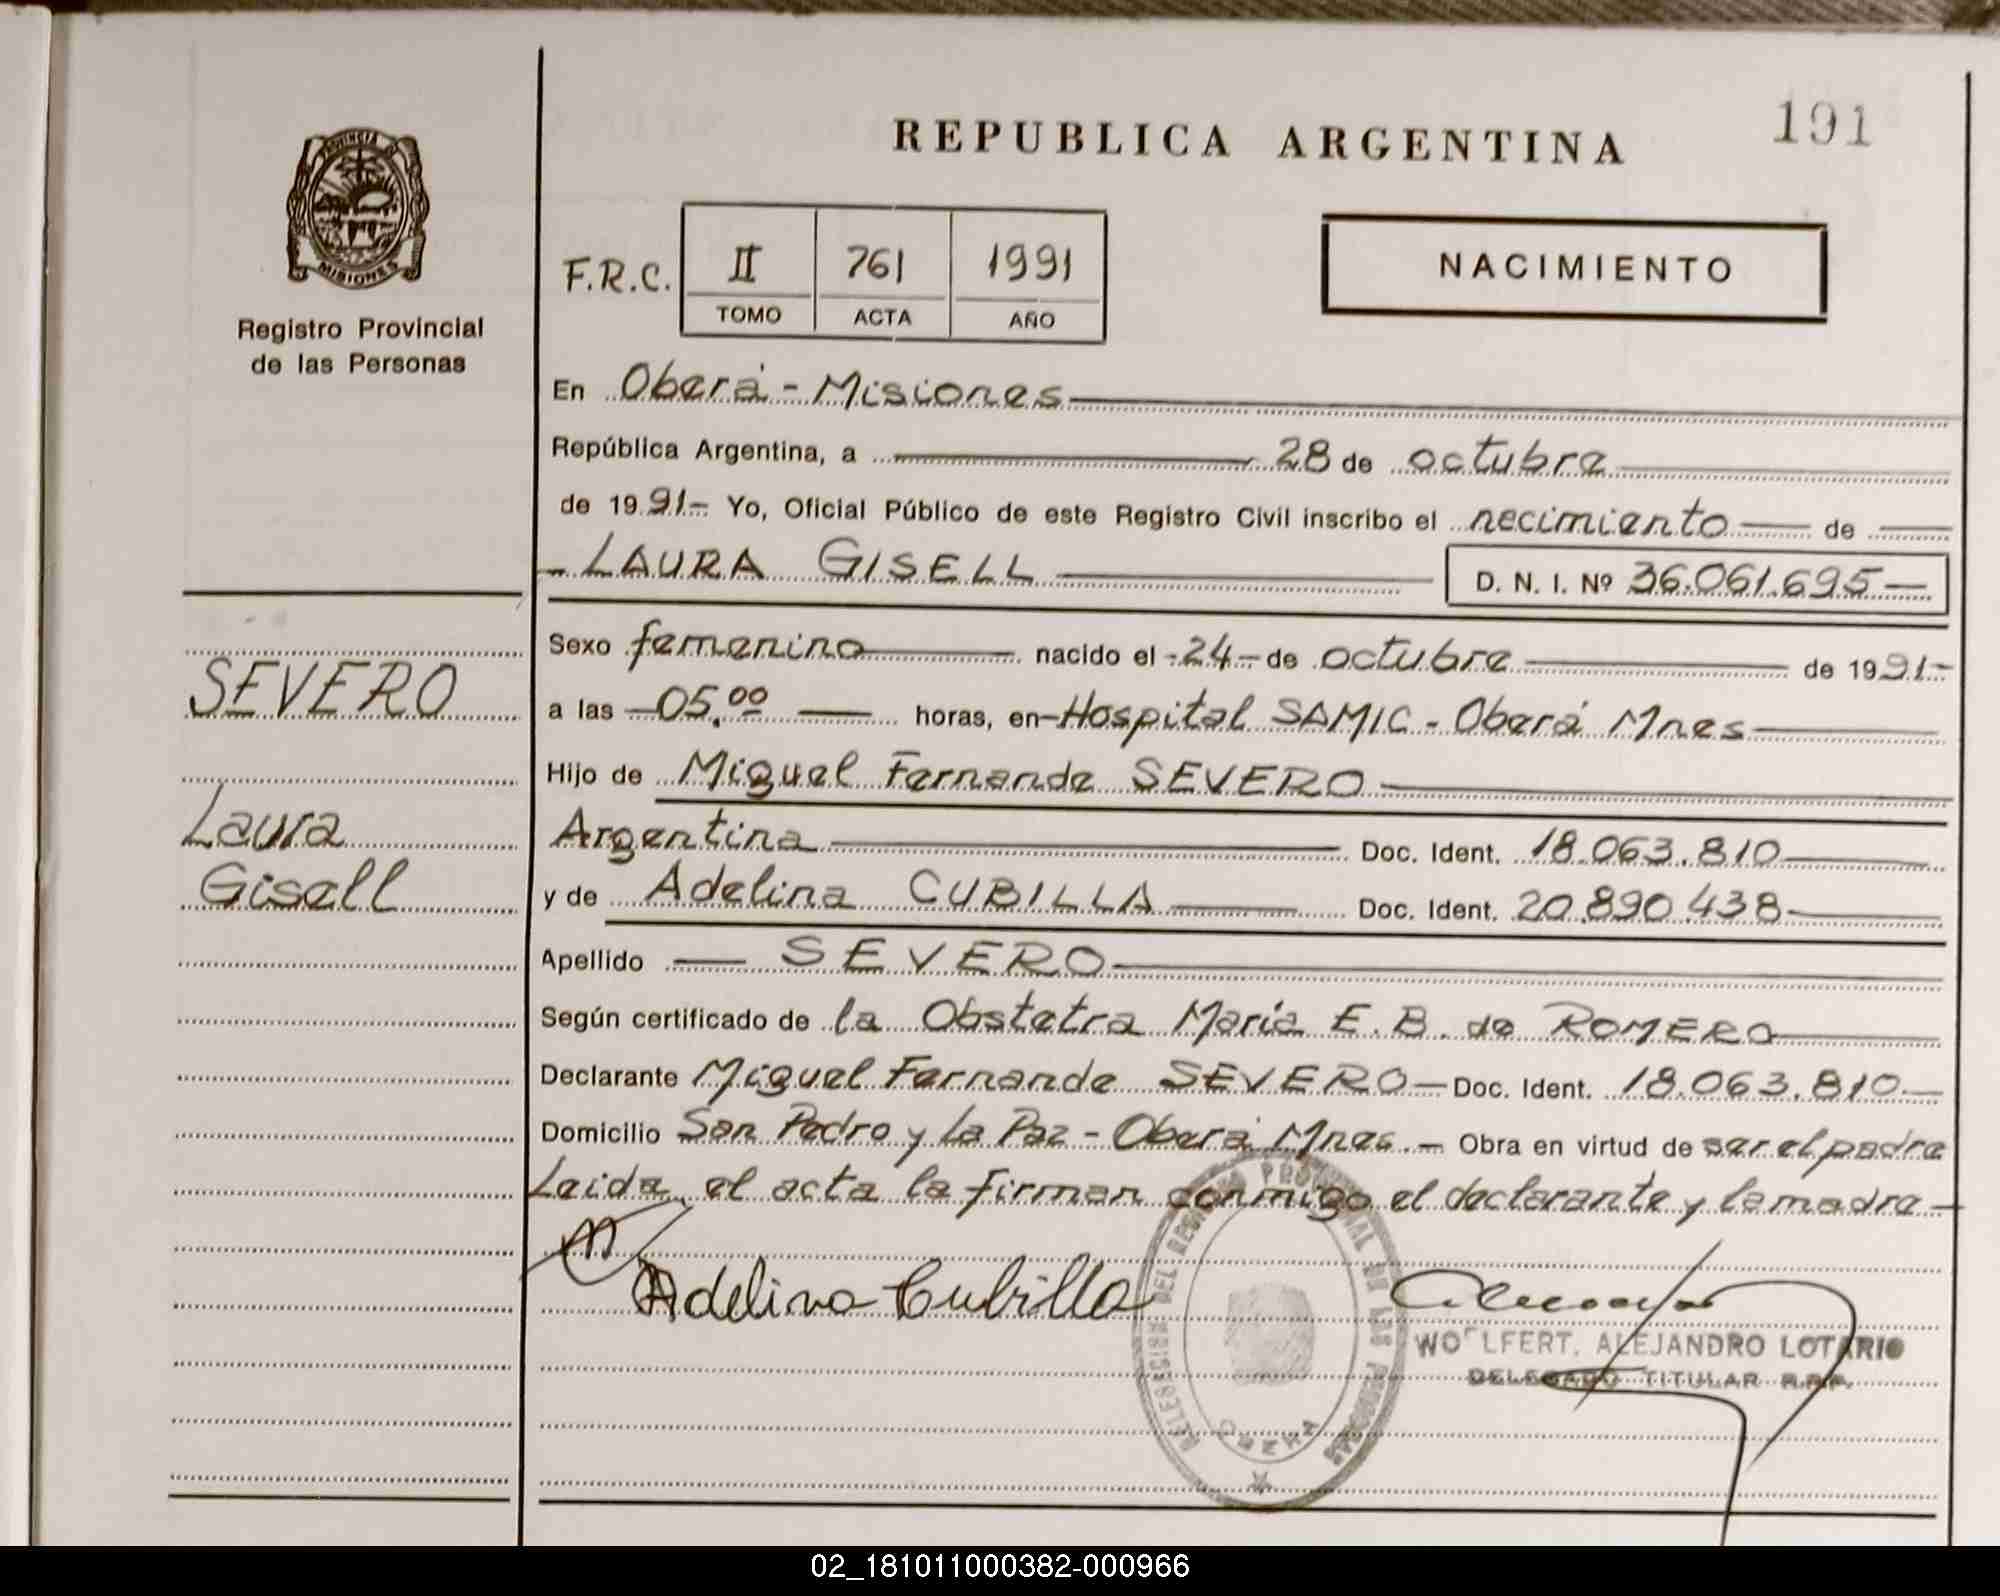 191
REPUBLICA ARGENTINA
PROVINCIA DE
MISIONES
Registro Provincial
de las Personas
F.R.C. II 761 1991
TOMO ACTA AÑO
NACIMIENTO
En Oberá - Misiones
República Argentina, a 28 de octubre
de 1991- Yo, Oficial Público de este Registro Civil inscribo el necimiento de
- LAURA GISELL D. N. I. Nº 36.061.695-
SEVERO
Laura
Gisell
Sexo femenino nacido el -24- de octubre de 1991-
a las -05,00 horas, en-Hospital SAMIC - Oberá Mnes
Hijo de Miguel Fernando SEVERO
Argentina Doc. Ident. 18.063.810
y de Adelina CUBILLA Doc. Ident. 20.890.438-
Apellido SEVERO
Según certificado de la Obstetra María E. B. de ROMERO
Declarante Miguel Fernando SEVERO- Doc. Ident. 18.063.810-
Domicilio San Pedro y La Paz - Oberá Mnes.- Obra en virtud de ser el padre
Leida, el acta la firman conmigo el declarante y la madre-
Adelina Cubilla
DELEGACION DEL REGISTRO PROVINCIAL DE LAS PERSONAS
OBERA
WOLFERT, ALEJANDRO LOTARIO
DELEGADO TITULAR R.P.P.
02_181011000382-000966